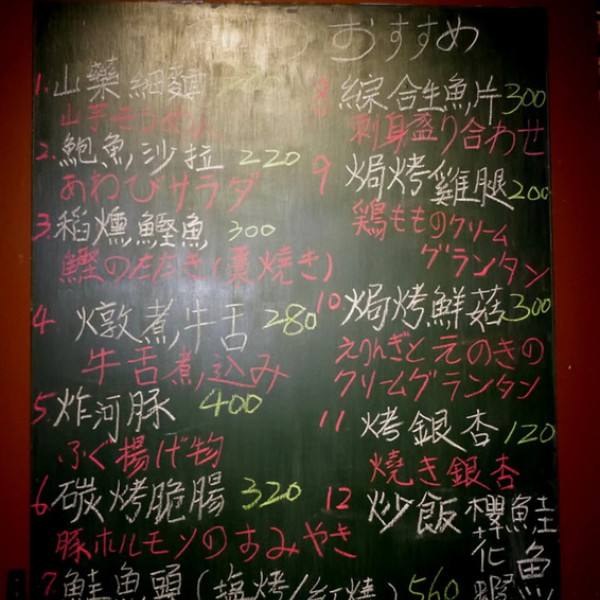 おすすめ
1. 山藥細麵
山芋そうめん
2. 鮑魚沙拉 220
あわびサラダ
3. 稻燻鰹魚 300
鰹のたたき(藁焼き)
4. 燉煮牛舌 280
牛舌煮込み
5. 炸河豚 400
ふぐ揚げ物
6 碳烤脆腸 320
豚ホルモンのすみやき
7. 鮭魚頭(塩烤/紅燒) 560
8 綜合生魚片 300
刺身盛り合わせ
9 焗烤雞腿 200
鶏もものクリーム
グランタン
10 焗烤鮮菇 300
えりんぎとえのきの
クリームグランタン
11. 烤銀杏 120
焼き銀杏
12 炒飯 櫻花蝦
鮭魚